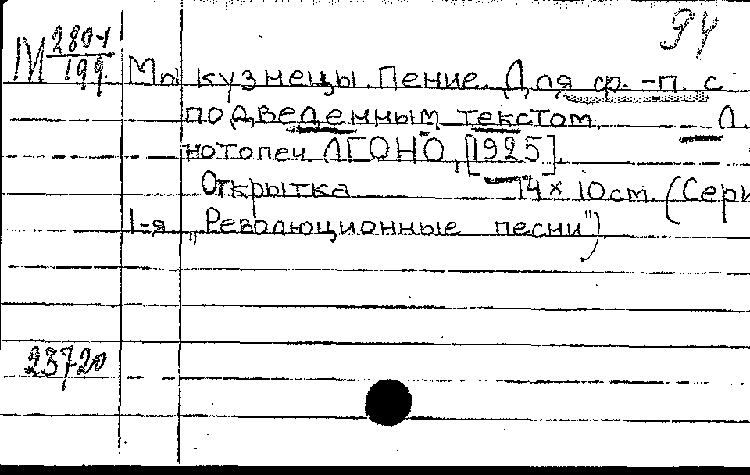 94
М 280-1
199
Мы кузнецы. Пение. Для ф.-п. с
подведенным текстом. Л.
нотопеч ЛГОНО, [1925].
Открытка 14 × 10 cm. (Сери
1-я „Революционные песни")
23720